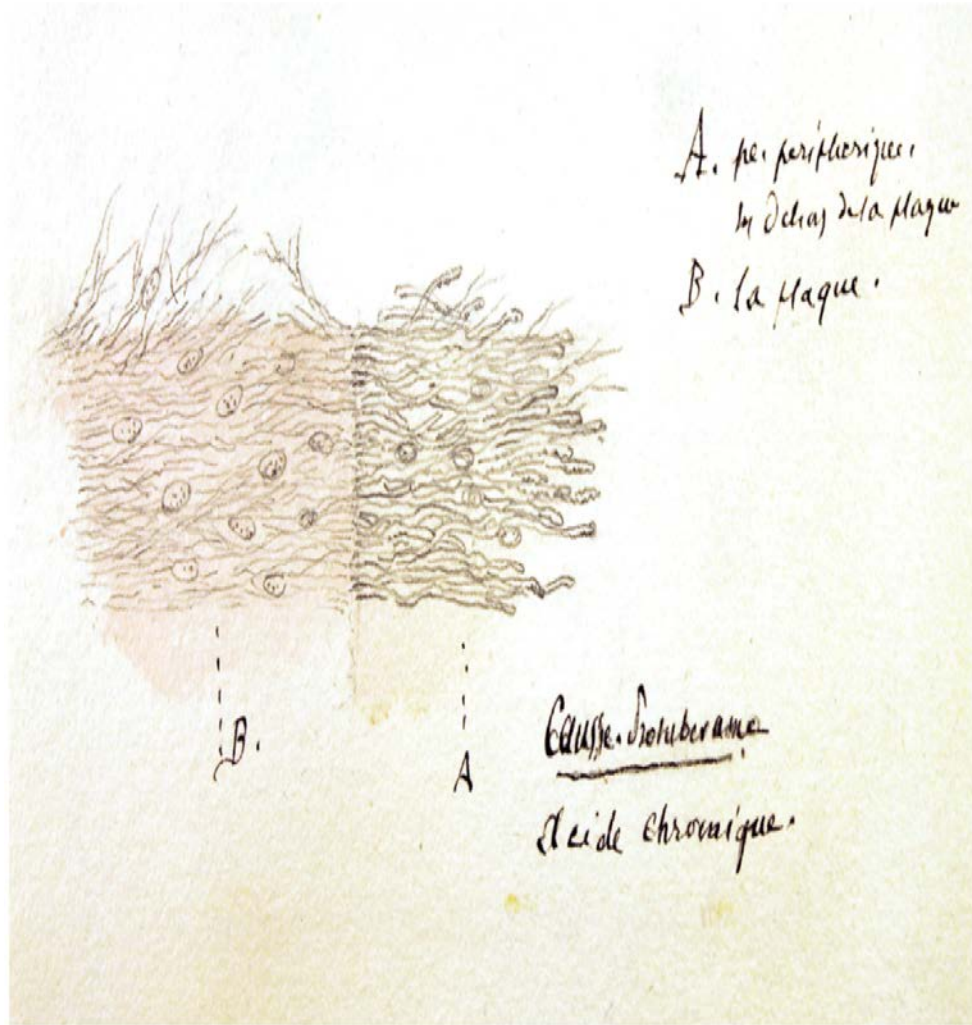 A. pe. periphérique.
en dehors de la plaque
B. la plaque.
B.
A
Causse. Protuberance
Acide chromique.